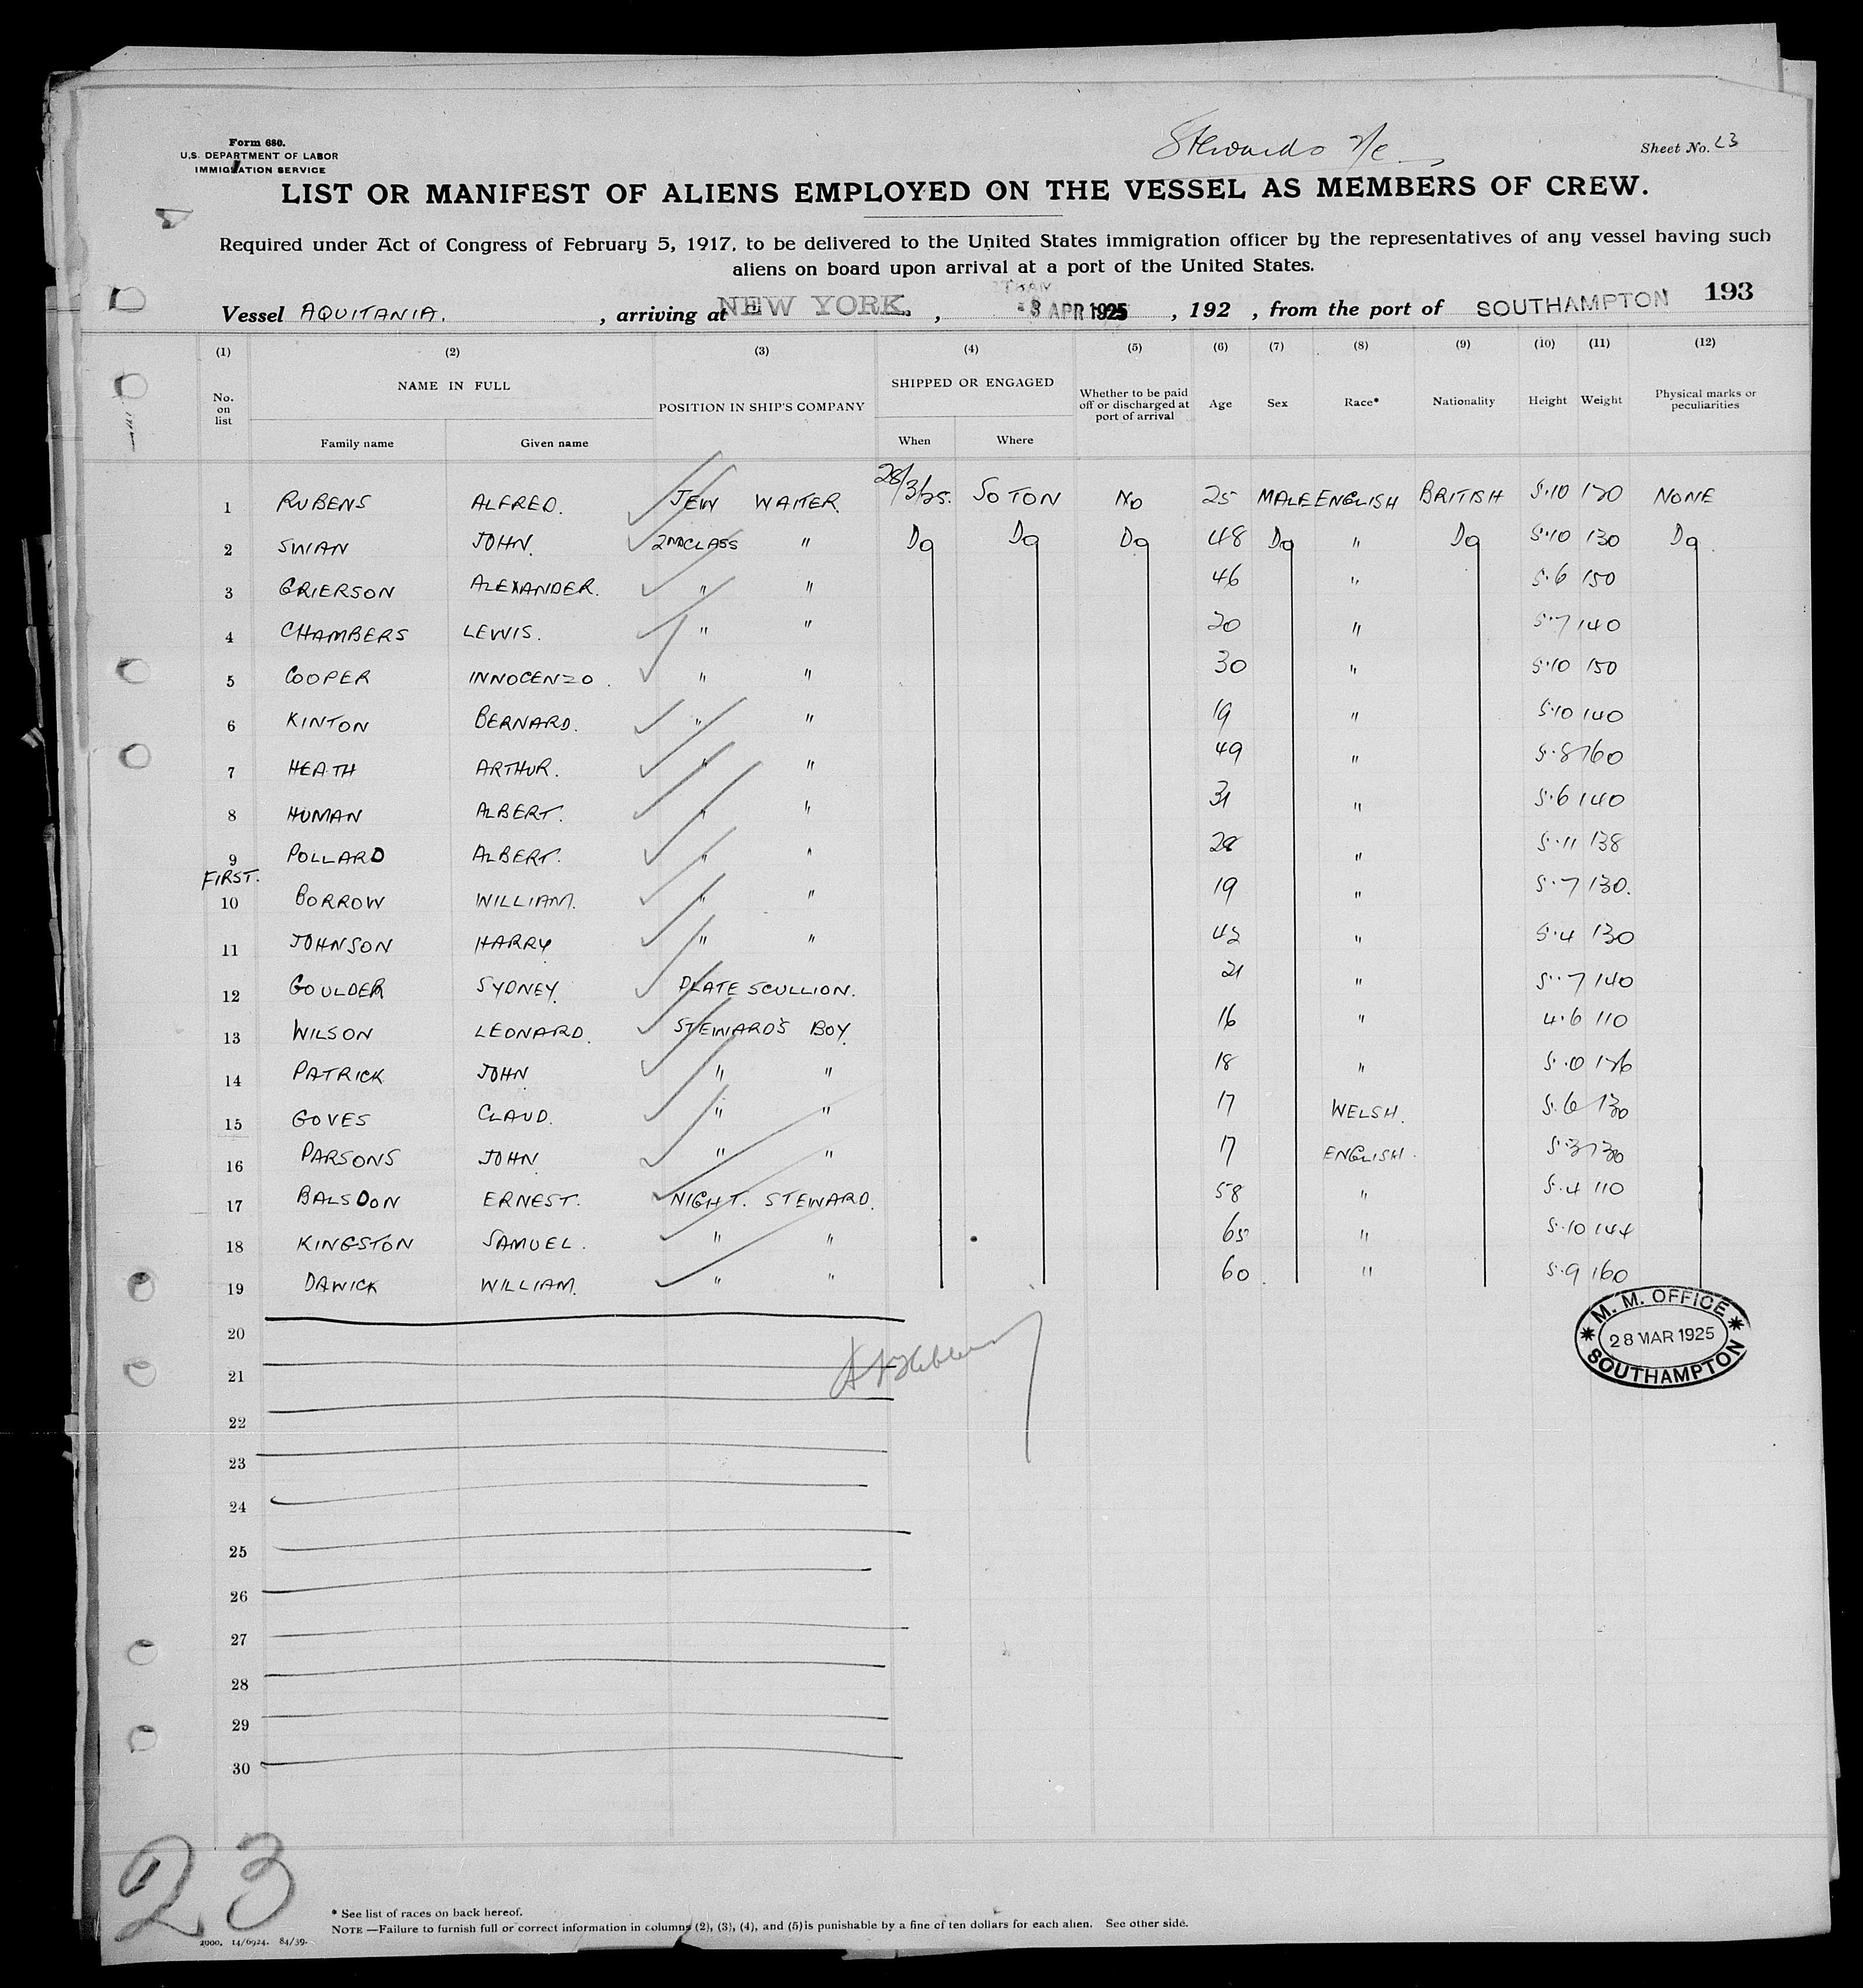 Form 680.
U.S. DEPARTMENT OF LABOR
IMMIGRATION SERVICE
Stewards
Sheet No. 23
LIST OR MANIFEST OF ALIENS EMPLOYED ON THE VESSEL AS MEMBERS OF CREW.
Required under Act of Congress of February 5, 1917, to be delivered to the United States immigration officer by the representatives of any vessel having such
aliens on board upon arrival at a port of the United States.
193
Vessel AQUITANIA. , arriving at NEW YORK. , 3 APR 1925 , 192 , from the port of SOUTHAMPTON
(1) (2) (3) (4) (5) (6) (7) (8) (9) (10) (11) (12)
No. on list NAME IN FULL POSITION IN SHIP'S COMPANY SHIPPED OR ENGAGED Whether to be paid off or discharged at port of arrival Age Sex Race* Nationality Height Weight Physical marks or peculiarities
Family name Given name When Where
1 RUBENS ALFRED. JEW WAITER 28/3/25. SOTON NO 25 MALE ENGLISH BRITISH 5.10 NONE
2 SWAN JOHN. 2ND CLASS " Do Do Do 48 Do " Do 5.10 130 Do.
3 GRIERSON ALEXANDER. " " 46 " 5.6 150
4 CHAMBERS LEWIS. " " 20 " 5.7 140
5 COOPER INNOCENZO. " " 30 " 5.10 150
6 KINTON BERNARD. " " 19 " 5.10 140
7 HEATH ARTHUR. " " 49 " 5.8 160
8 HUMAN ALBERT. " " 31 " 5.6 140
9 POLLARD ALBERT. " " 28 " 5.11 138
FIRST.
10 BORROW WILLIAM. " " 19 " 5.7 130.
11 JOHNSON HARRY " " 42 " 5.4 130
12 GOULDER SYDNEY. PLATE SCULLION. 21 " 5.7 140
13 WILSON LEONARD. STEWARD'S BOY. 16 " 4.6 110
14 PATRICK JOHN " " 18 " 5.0
15 GOVES CLAUD. " " 17 WELSH. 5.6 130
16 PARSONS JOHN " " 17 ENGLISH. 5.3 130
17 BALSDON ERNEST. NIGHT. STEWARD. 58 " 5.4 110
18 KINGSTON SAMUEL. " " 65 " 5.10 144
19 DAWICK WILLIAM. " " 60. " 5.9 160
M. M. OFFICE
28 MAR 1925
SOUTHAMPTON
20
21
22
23
24
25
26
27
28
29
30
23
* See list of races on back hereof.
NOTE —Failure to furnish full or correct information in columns (2), (3), (4), and (5) is punishable by a fine of ten dollars for each alien. See other side.
2000. 14/6924. 84/39.